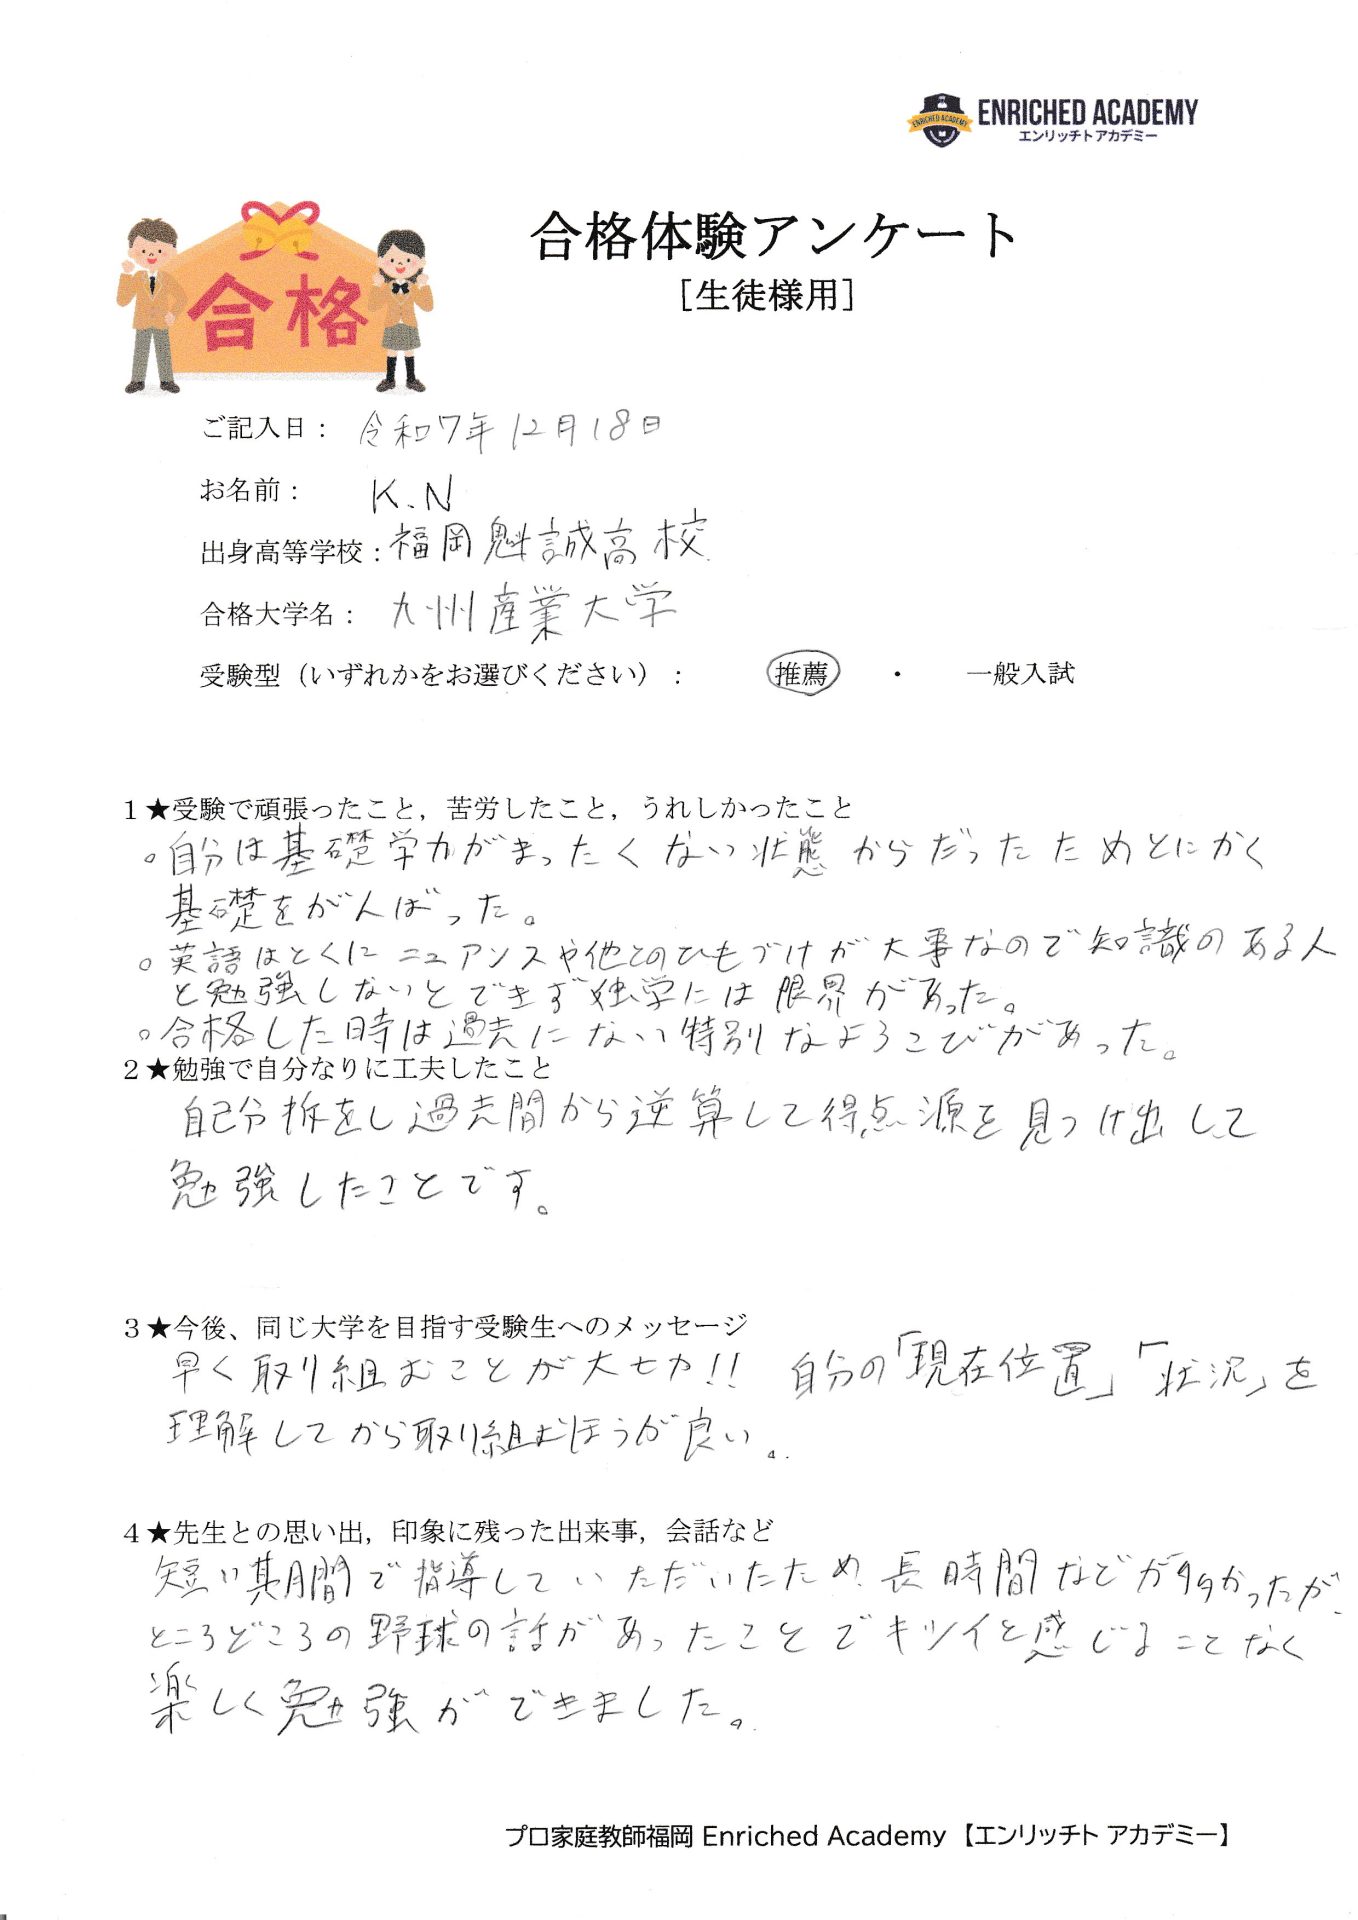 ENRICHED ACADEMY
ENRICHED ACADEMY
エンリッチト アカデミー
合格
合格体験アンケート
［生徒様用］
ご記入日： 令和7年12月18日
お名前： K.N
出身高等学校：福岡魁誠高校
合格大学名： 九州産業大学
受験型（いずれかをお選びください）： 推薦 ・ 一般入試
１★受験で頑張ったこと，苦労したこと，うれしかったこと
。自分は基礎学力がまったくない状態からだったためとにかく
基礎をがんばった。
。英語はとくにニュアンスや他とのひもづけが大事なので知識のある人
と勉強しないとできず独学には限界があった。
。合格した時は過去にない特別なよろこびがあった。
２★勉強で自分なりに工夫したこと
自己分析をし過去問から逆算して得点源を見つけ出して
勉強したことです。
３★今後、同じ大学を目指す受験生へのメッセージ
早く取り組むことが大切!! 自分の「現在位置」「状況」を
理解してから取り組むほうが良い。
４★先生との思い出，印象に残った出来事，会話など
短い期間で指導していただいたため、長時間などが多かったが、
ところどころの野球の話があったことでキツイと感じることなく
楽しく勉強ができました。
プロ家庭教師福岡 Enriched Academy【エンリッチト アカデミー】